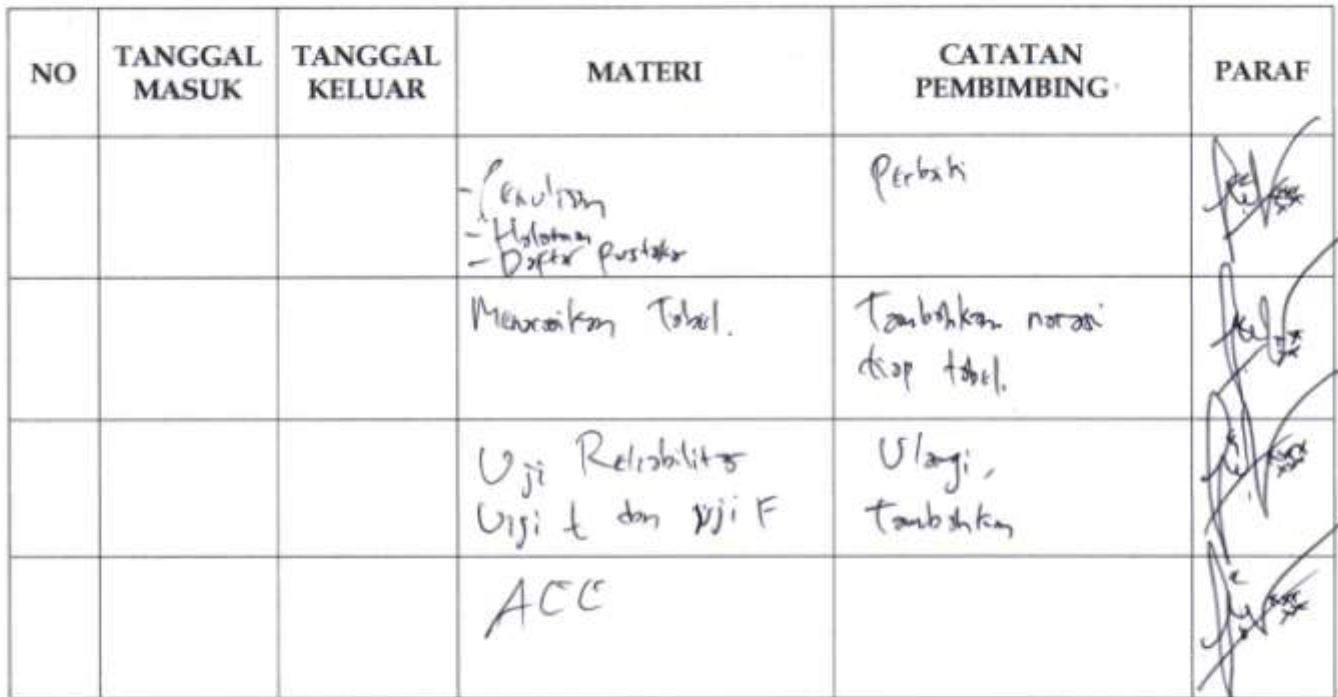 NO TANGGAL MASUK TANGGAL KELUAR MATERI CATATAN PEMBIMBING PARAF
- Penulisan Perbaiki
- Halaman
- Daftar Pustaka
Menarasikan Tabel. Tambahkan narasi
tiap tabel.
Uji Reliabilitas Ulangi,
Uji t dan Uji F Tambahkan
ACC